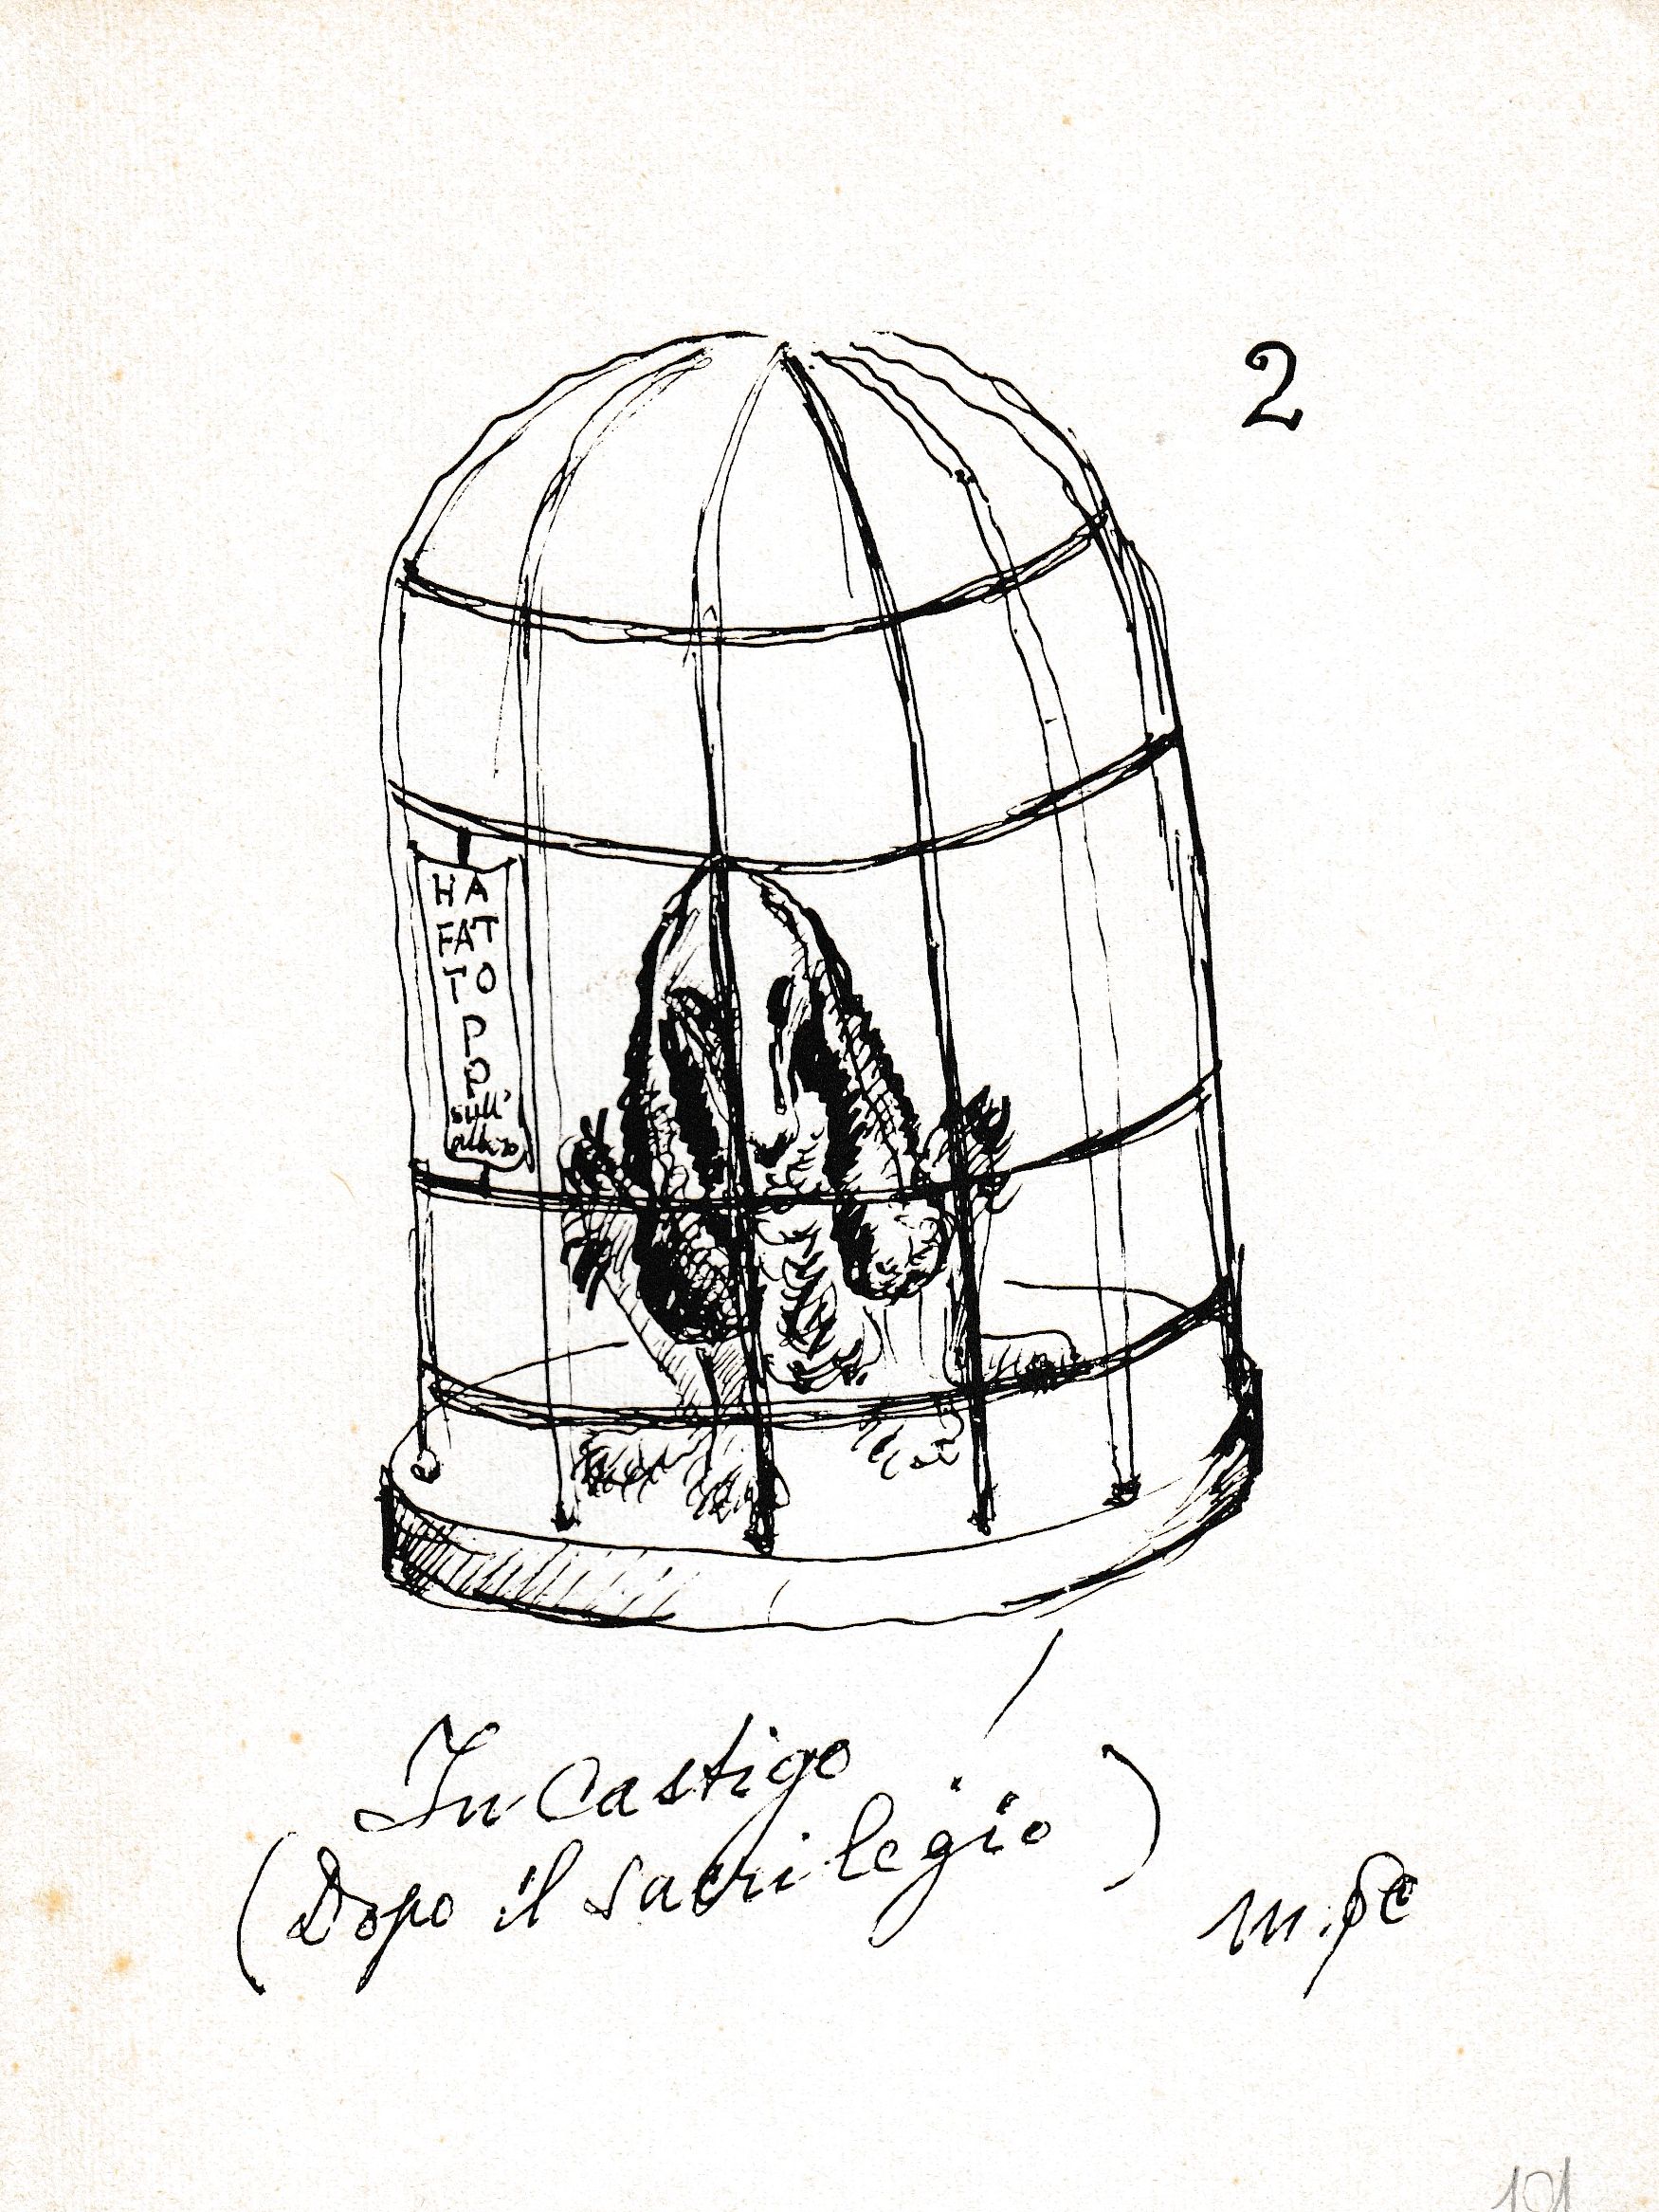 2
HA
FAT
TO
PO
P
sull'
albero
In Castigo
(Dopo il sacrilegio)
m.pe
191